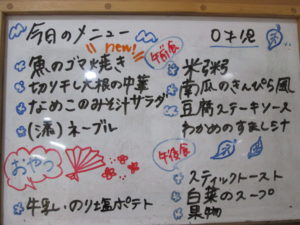 今日のメニュー
new!
魚のゴマ焼き
切り干し大根の中華
なめこのみそ汁サラダ
(添)ネーブル
おやつ
牛乳、のり塩ポテト
0才児
午前食
米粥
南瓜のきんぴら風
豆腐ステーキソース
わかめのすましミナ
午後食
スティックトースト
白菜のスープ
果物